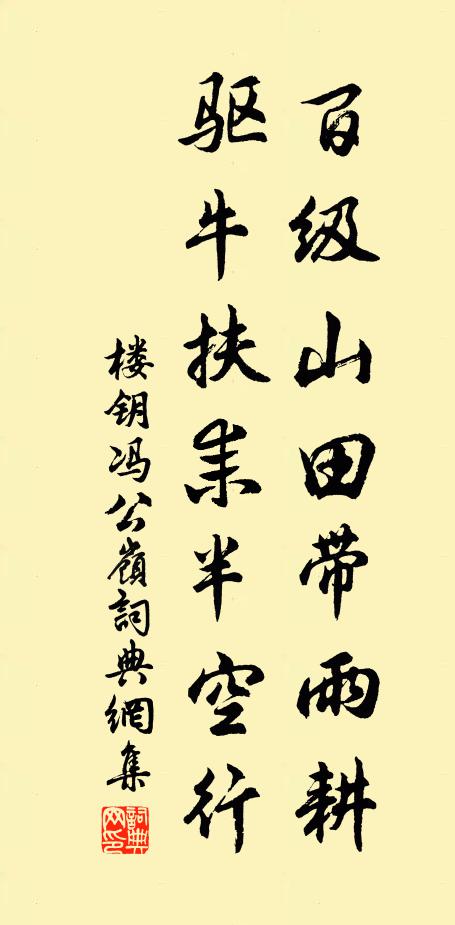 百级山田带雨耕
驱牛扶耒半空行
楼钥冯公嶺詞典網集
詞典
网印